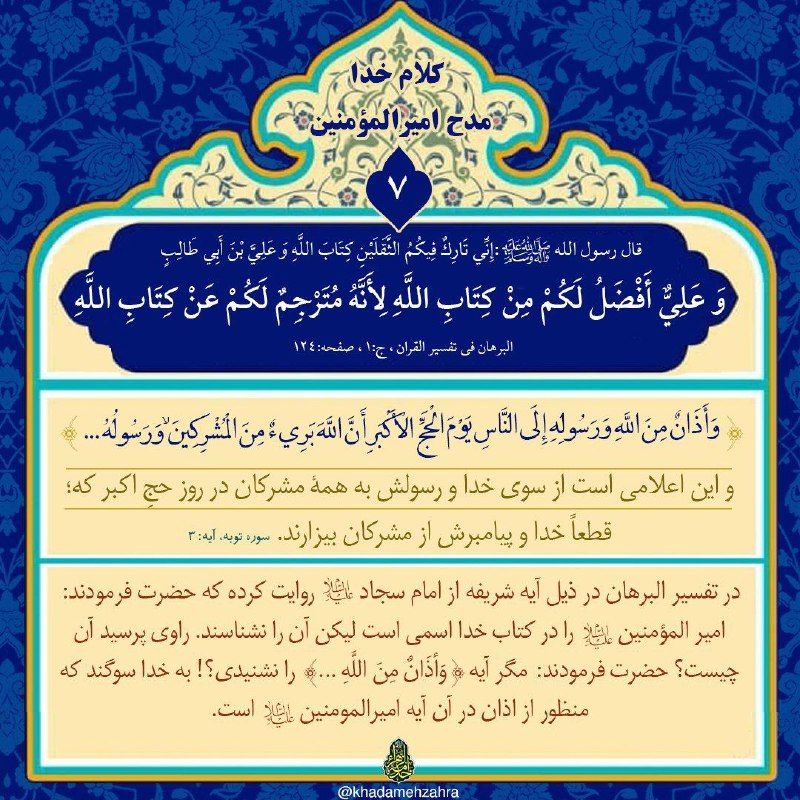 کلام خدا
مدح امیرالمؤمنین
۷
قال رسول الله ﷺ: إِنِّي تَارِكٌ فِيكُمُ الثَّقَلَيْنِ كِتَابَ اللَّهِ وَ عَلِيَّ بْنَ أَبِي طَالِبٍ
وَ عَلِيٌّ أَفْضَلُ لَكُمْ مِنْ كِتَابِ اللَّهِ لِأَنَّهُ مُتَرْجِمٌ لَكُمْ عَنْ كِتَابِ اللَّهِ
البرهان فی تفسیر القران، ج:۱، صفحه: ۱۲۴
﴿ وَأَذَانٌ مِنَ اللَّهِ وَرَسُولِهِ إِلَى النَّاسِ يَوْمَ الْحَجِّ الْأَكْبَرِ أَنَّ اللَّهَ بَرِيءٌ مِنَ الْمُشْرِكِينَ ۙ وَرَسُولُهُ ... ﴾
و این اعلامی است از سوی خدا و رسولش به همهٔ مشرکان در روز حجِ اکبر که؛
قطعاً خدا و پیامبرش از مشرکان بیزارند. سوره توبه، آیه: ۳
در تفسیر البرهان در ذیل آیه شریفه از امام سجاد علیه‌السلام روایت کرده که حضرت فرمودند:
امیر المؤمنین علیه‌السلام را در کتاب خدا اسمی است لیکن آن را نشناسند. راوی پرسید آن
چیست؟ حضرت فرمودند: مگر آیه ﴿ وَأَذَانٌ مِنَ اللَّهِ ...﴾ را نشنیدی؟! به خدا سوگند که
منظور از اذان در آن آیه امیرالمومنین علیه‌السلام است.
@khadamehzahra